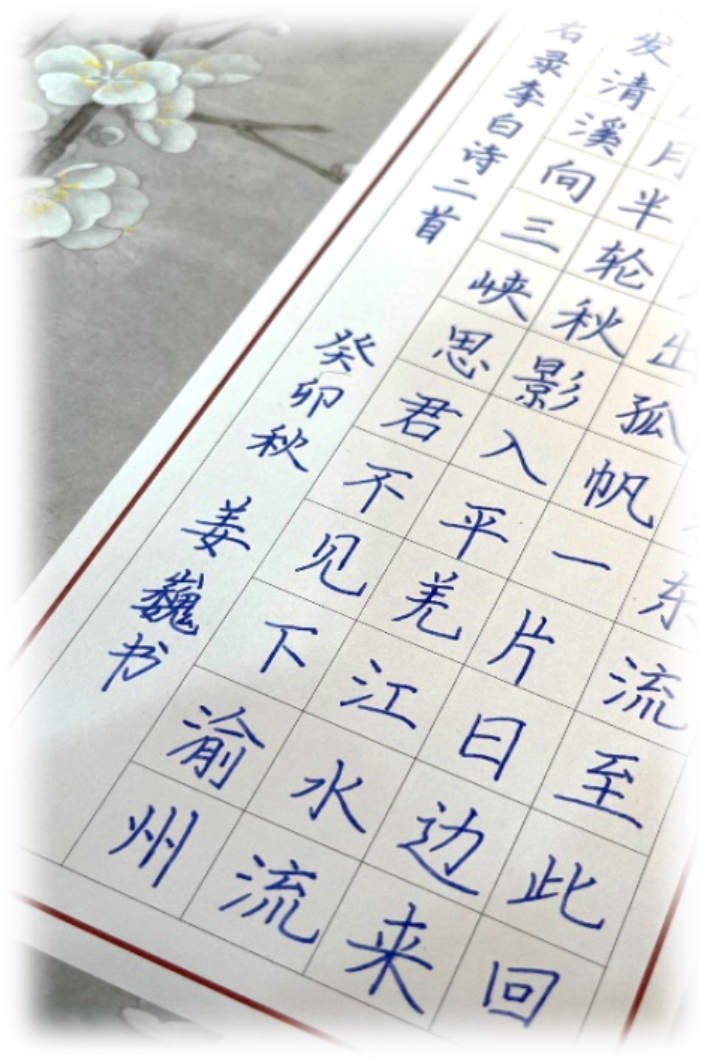 东流至此回
出孤帆一片日边来
月半轮秋影入平羌江水流
发清溪向三峡思君不见下渝州
右录李白诗二首 癸卯秋 姜巍书